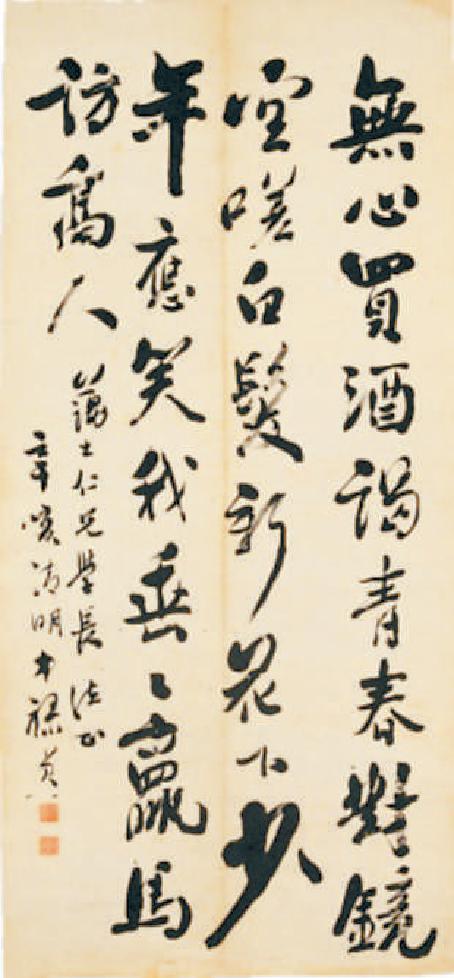 無心買酒謁青春對鏡
空嗟白髮新花下少
年應笑我垂〻羸馬
訪高人
藹士仁兄學長法正
辛亥清明弟祿貞